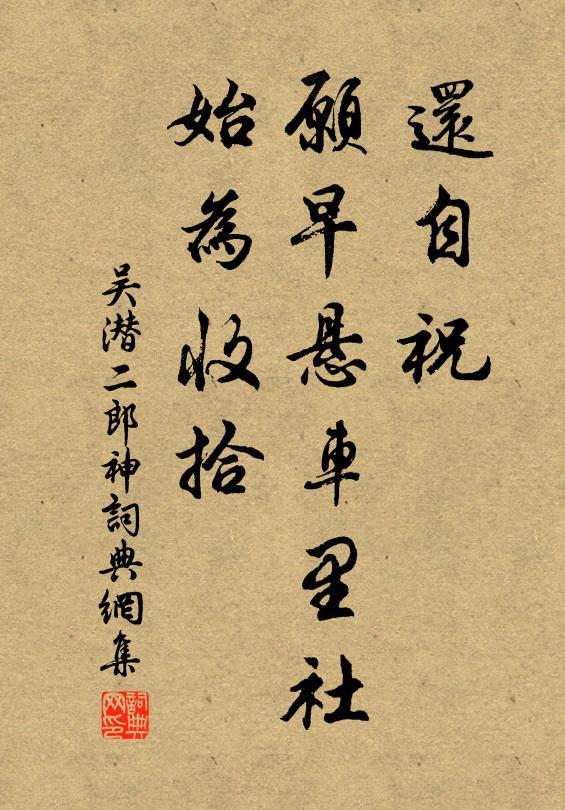 還自祝
願早悬車里社
始為收拾
吴潜二郎神詞典網集
詞典网印